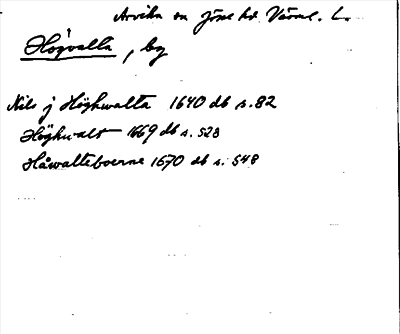 Arvika sn Jösse hd Värml. L.
Högvalla, by
Nils j Höghwalta 1640 db s. 82
Höghwalt 1669 db s. 528
Håwalteboerne 1670 db s. 548